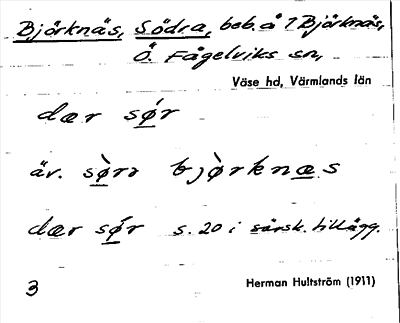 Björknäs, Södra, beb. å 1 Björknäs,
Ö. Fågelviks sn,
Väse hd, Värmlands län
dær sǿ̗r
äv. sø̗̀rə bjø̀rknæs
dær sǿ̗r s. 20 i särsk. tillägg.
3 Herman Hultström (1911)